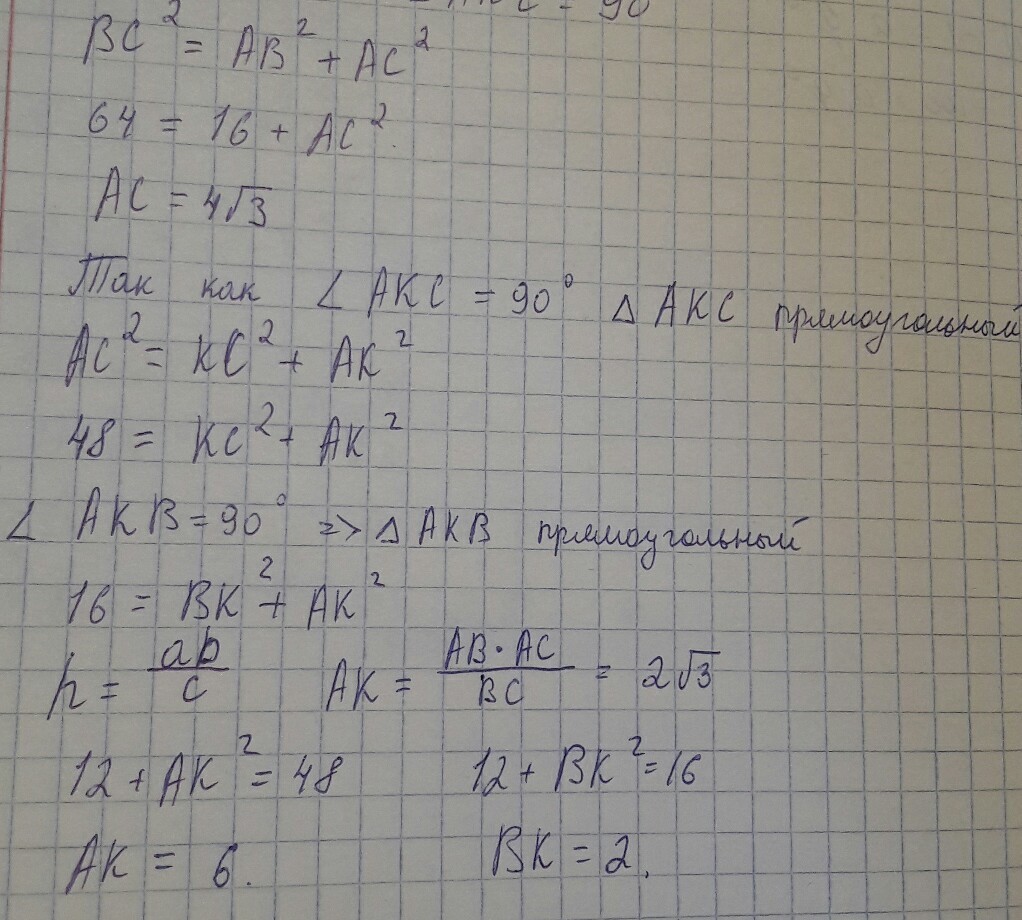 = 90
BC² = AB² + AC²
64 = 16 + AC².
AC = 4√3
Так как ∠ AKC = 90° △ AKC прямоугольный
AC² = KC² + AK²
48 = KC² + AK²
∠ AKB = 90° => △ AKB прямоугольный
16 = BK² + AK²
h = ab/c AK = AB · AC/BC = 2√3
12 + AK² = 48 12 + BK² = 16
AK = 6. BK = 2.